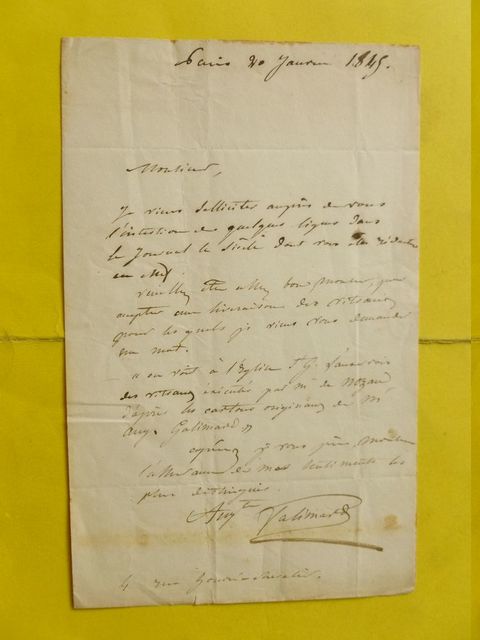 Paris 20 Janvier 1845.
Monsieur,
Je viens solliciter auprès de vous
l'insertion de quelques lignes dans
le Journal le Siècle dont vous êtes rédacteur
en chef
veuillez être bon Monsieur, pour
accepter une livraison des vitraux
pour lesquels je viens vous demander
un mot.
" on voit à l'Eglise St G. l'auxerrois
des vitraux exécutés par Mr de Nozan
d'après les cartons originaux de Mr
Aug. Galimard "
je vous prie, Monsieur
de mes sentiments les
plus distingués.
Augte Galimard
4 rue